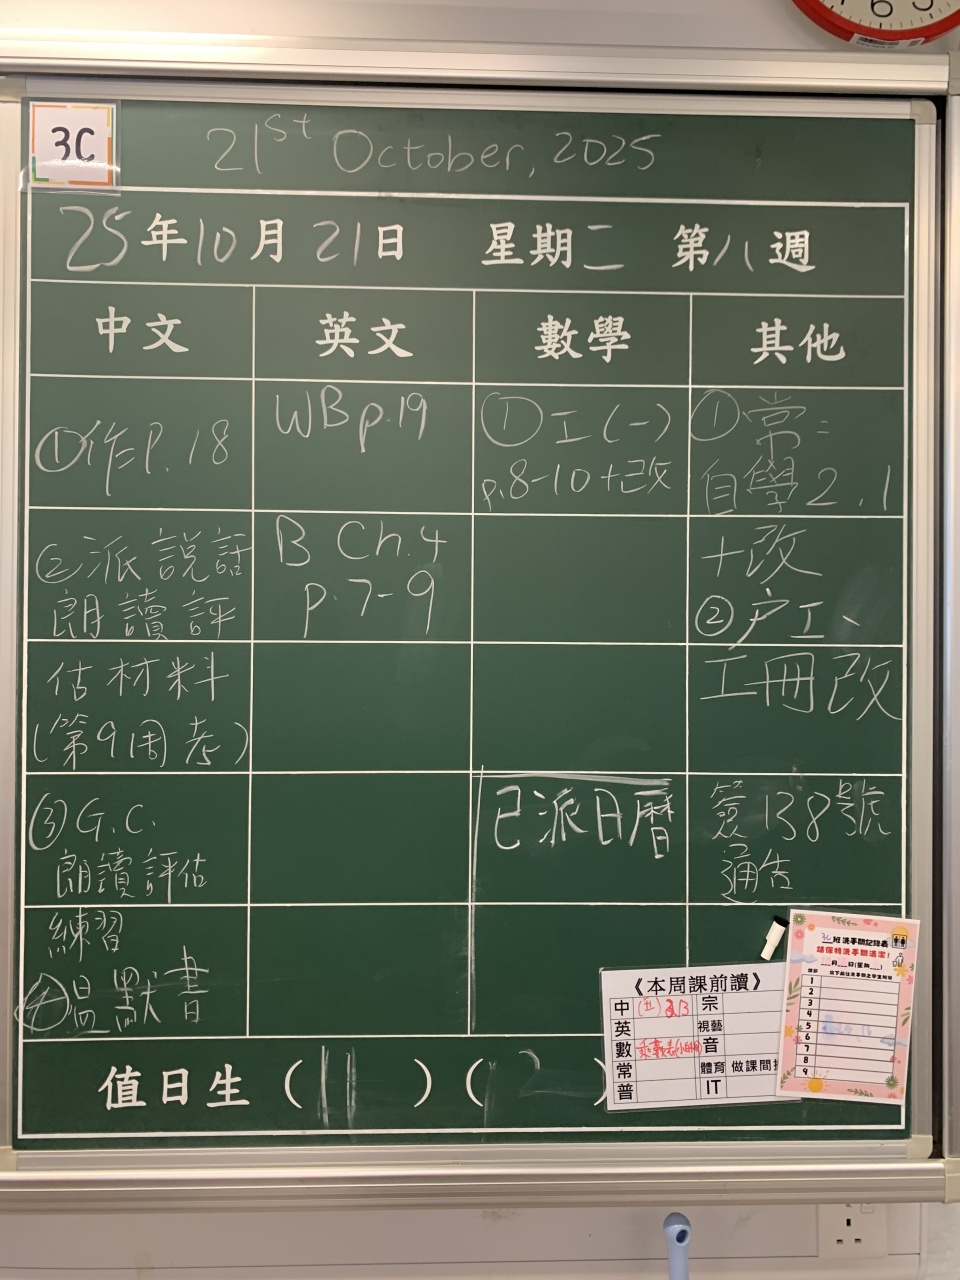 3C
21st October, 2025
25年10月21日 星期二 第八週
中文
英文
數學
其他
①作P.18
②派說話
朗讀評
估材料
(第9周考)
③G.C.
朗讀評估
練習
④温默書
WB p.19
B Ch.4
p.7-9
①工(一)
p.8-10+改
已派日曆
①常:
自學2.1
+改
②戶工、
工冊改
簽138號
通告
值日生 (11) (12)
《本周課前讀》
中
宗
英
視藝
數
音
常
體育 做課間操
普
IT
3C班洗手間記錄表
請保持洗手間清潔!
月 日(星期 )
1
2
3
4
5
6
7
8
9